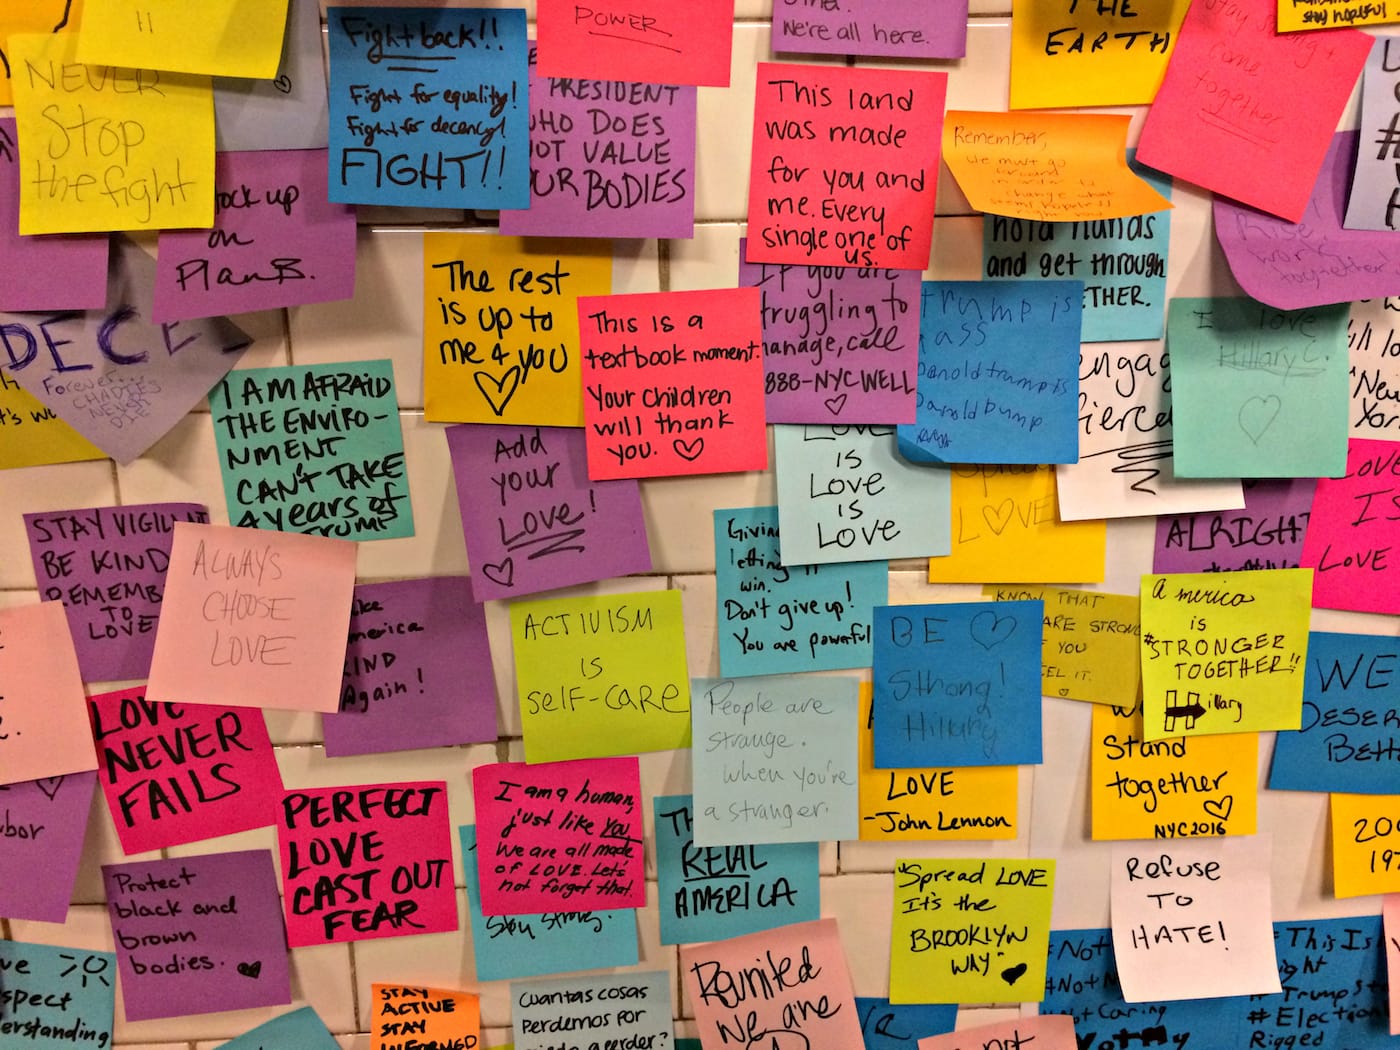 POWER
We're all here.
THE
EARTH
stay hopeful.
Stay strong +
come
together
NEVER
Stop
the fight
Fight back!!
Fight for equality!
Fight for decency!
FIGHT!!
PRESIDENT
WHO DOES
NOT VALUE
OUR BODIES
This land
was made
for you and
me. Every
single one of
us.
Remember,
we must go
forward
in order to
change what
hold hands
and get through
TOGETHER.
Rise!
work
together!
Stock up
on
Plan B.
The rest
is up to
me & you
This is a
textbook moment.
Your children
will thank
you.
If you are
struggling to
manage, call
888-NYCWELL
Trump is
ass
Danold trump is
Danold Dump
engage
fiercely
I love
Hillary C.
New
York
DECE
Forever...
I AM AFRAID
THE ENVIRO-
NMENT
CAN'T TAKE
4 years of
Trump
Add
your
Love!
LOVE
IS
LOVE
IS
LOVE
Spread
LOVE
ALRIGHT
LOVE
IS
LOVE
STAY VIGILANT
BE KIND
REMEMB
TO
LOVE
ALWAYS
CHOOSE
LOVE
America
KIND
Again!
ACTIVISM
IS
SELF-CARE
Giving
letting
win.
Don't give up!
You are powerful
BE
Strong!
Hillary
KNOW THAT
ARE STRONG
YOU
FEEL IT.
America
is
#STRONGER
TOGETHER!!
Hillary
WE
DESERVE
Better
LOVE
NEVER
FAILS
People are
strange.
when you're
a stranger.
LOVE
-John Lennon
We
Stand
together
NYC 2016
PERFECT
LOVE
CAST OUT
FEAR
I am a human,
just like you
We are all made
of LOVE. Let's
not forget that.
Stay Strong.
THE
REAL
AMERICA
"Spread LOVE
It's the
BROOKLYN
WAY"
Refuse
TO
HATE!
Protect
black and
brown
bodies.
STAY
ACTIVE
STAY
INFORMED
Cuantas cosas
Perdemos por
miedo a perder?
Reunited
We are
#Not
#Not
#Not Caring
#This Is
#Election
Rigged